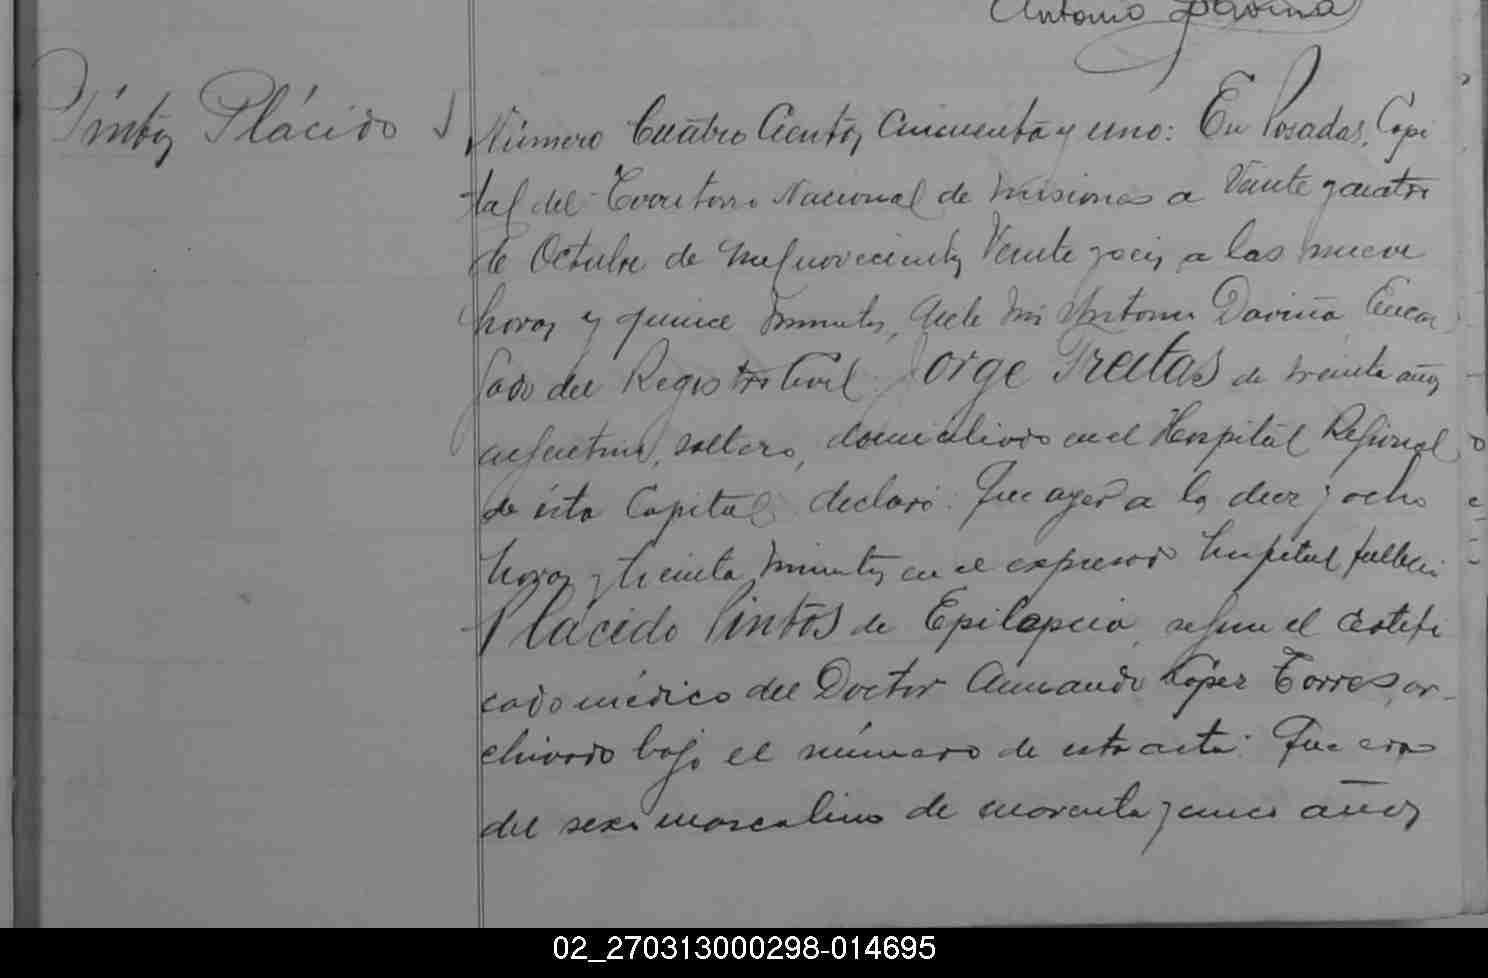 Antonio Daviña
Pintos Plácido
Número Cuatro Cientos Cincuenta y uno: En Posadas, Capi
tal del Territorio Nacional de Misiones a Veinte y cuatro
de Octubre de mil novecientos Veinte y seis a las nueve
horas y quince minutos, Ante mi Antonio Daviña Encar
gado del Registro Civil Jorge Freitas de treinta años
argentino, soltero, domiciliado en el Hospital Regional
de ésta Capital declaró: Que ayer a las diez y ocho
horas y treinta minutos en el expresado hospital falleció
Plácido Pintos de Epilepcia, segun el certifi
cado médico del Doctor Armando López Torres, ar-
chivado bajo el número de esta acta: Que era
del sexo masculino de cuarenta y cinco años
02_270313000298-014695